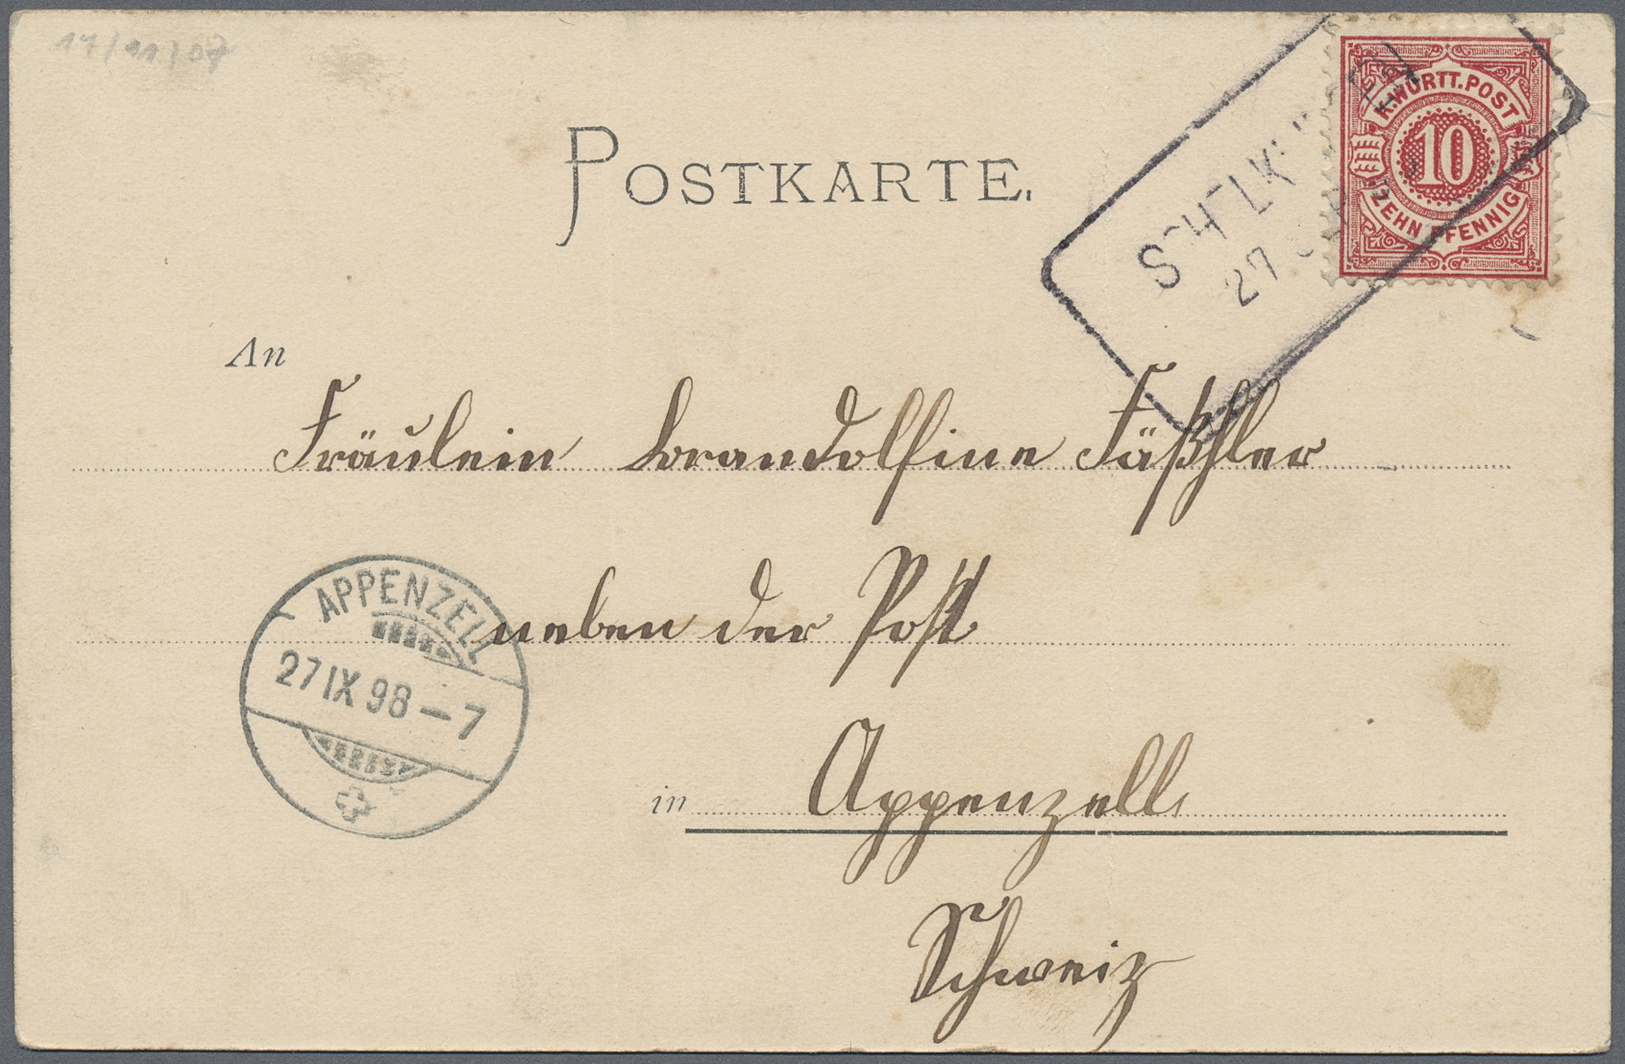 17/11/07
POSTKARTE.
K. WÜRTT. POST
10
ZEHN PFENNIG
27 SEP
An
Fräulein Brandolfine Fäßhler
neben der Post
APPENZELL
27 IX 98 – 7
in Appenzell
Schweiz